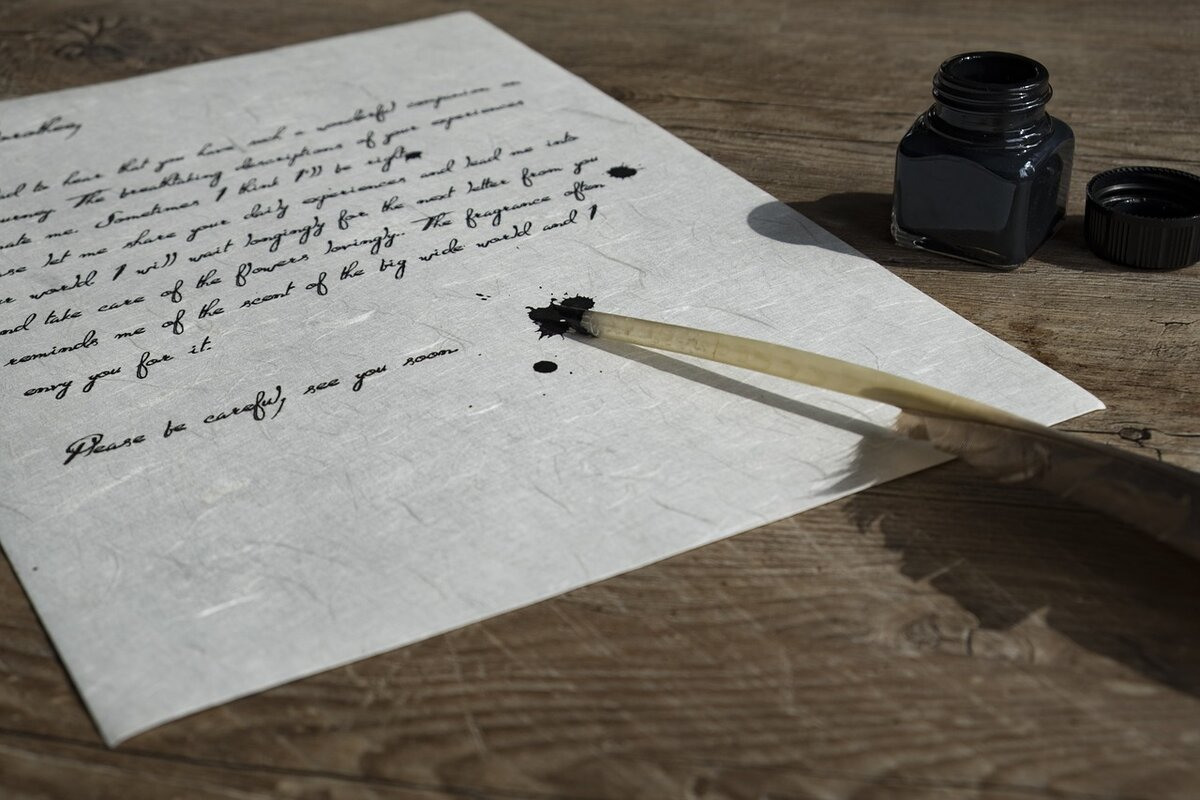 to hear that you have a wonderful companion on
urney. The breathtaking descriptions of your experiences
nate me. Sometimes I think I'll be right
se let me share your daily eperiences and lead me into
r world I will wait longingly for the next letter from you
nd take care of the flowers lovingly.. The fragrance often
reminds me of the scent of the big wide world and I
envy you for it.
Please be careful, see you soon